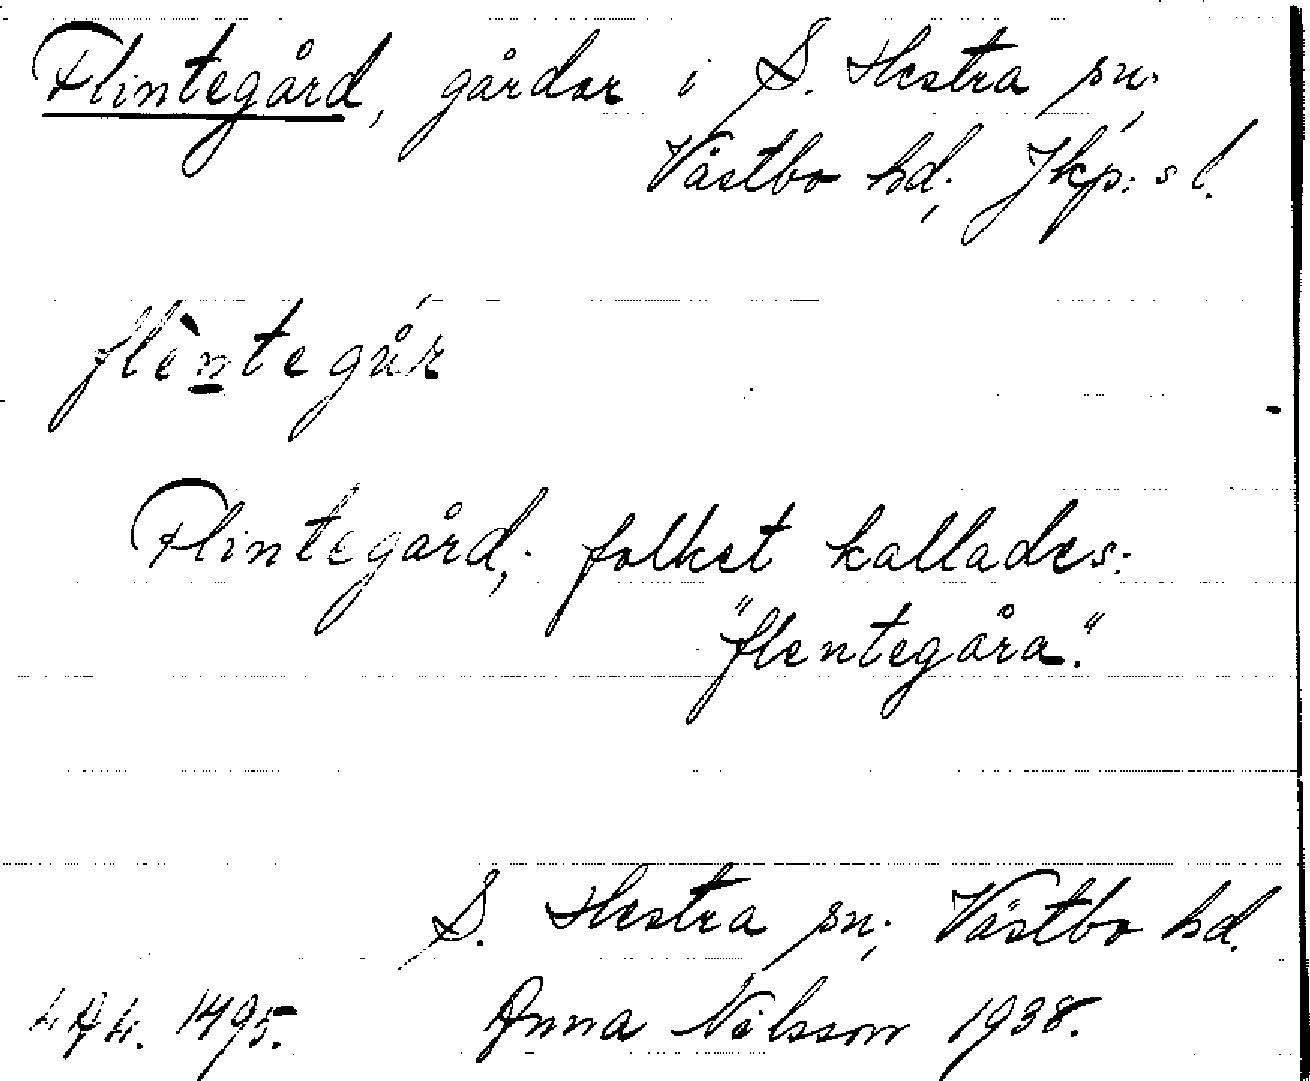 Flintegård, gårdar i S. Hestra sn;
Västbo hd; Jkp:s l.
flèntegǻr
Flintegård; folket kallades:
"flentegåra".
S. Hestra sn; Västbo hd.
1495. Anna Nilsson 1938.